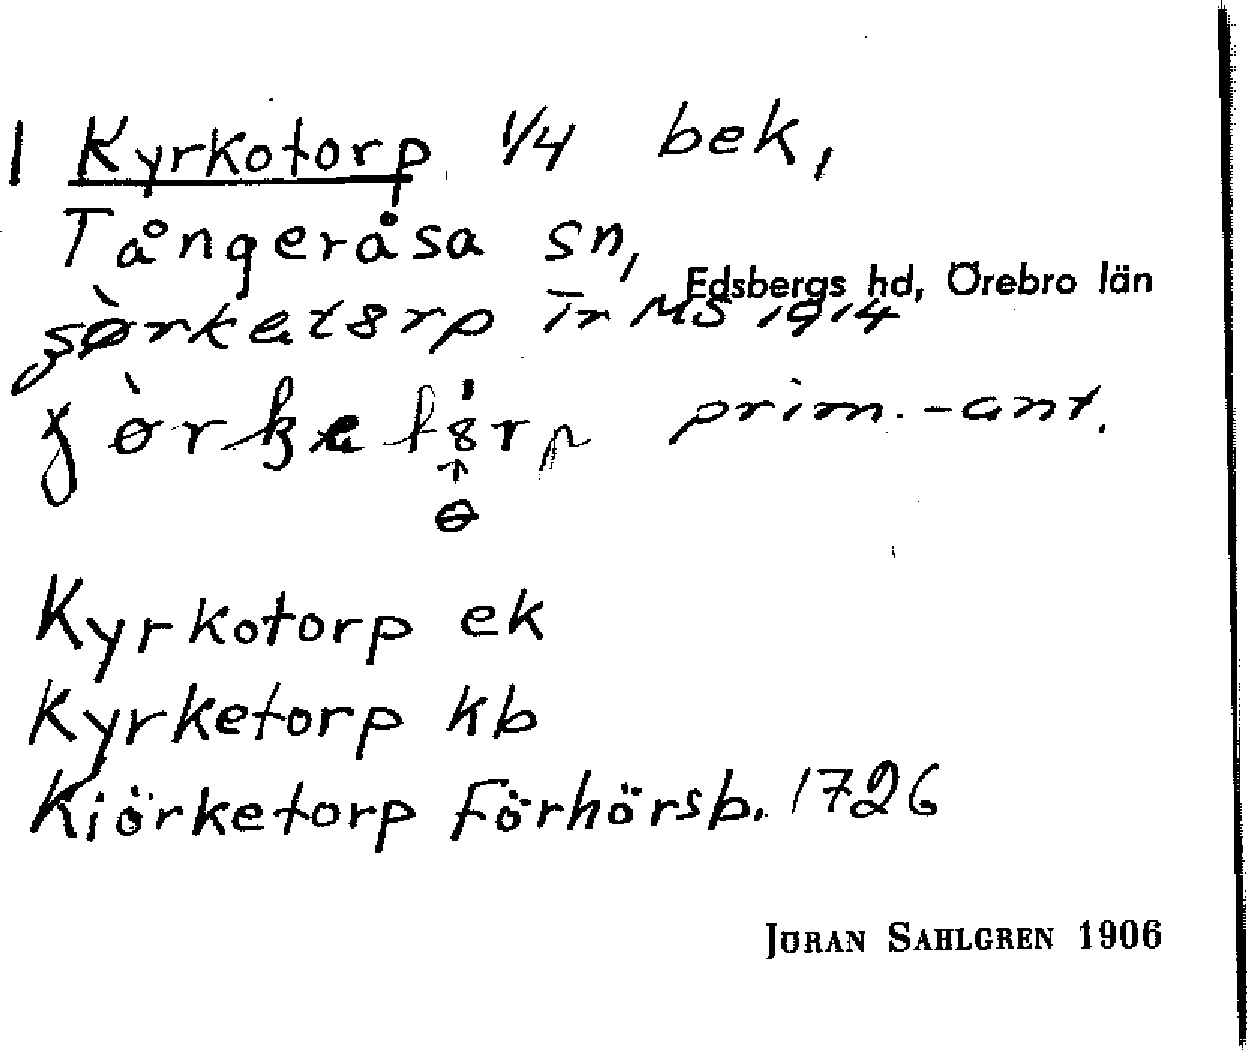 1 Kyrkotorp 1/4 bek,
Tångeråsa sn,
Edsbergs hd, Örebro län
MS 1914
prim.-ant.
Kyrkotorp ek
Kyrketorp kb
Kiörketorp Förhörsb. 1726
JÖRAN SAHLGREN 1906